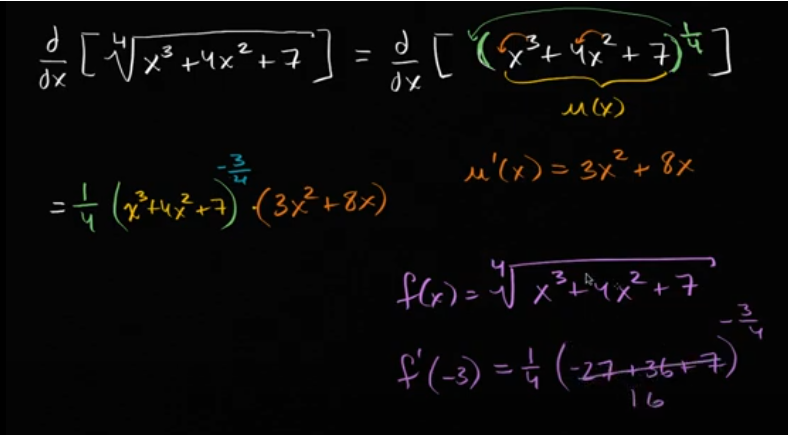 d/dx [ ∜(x³ + 4x² + 7) ] = d/dx [ (x³ + 4x² + 7)^(1/4) ]
u(x)
u'(x) = 3x² + 8x
= 1/4 (x³+4x²+7)^(-3/4) · (3x² + 8x)
f(x) = ∜(x³ + 4x² + 7)
f'(-3) = 1/4 (-27 + 36 + 7)^(-3/4)
16